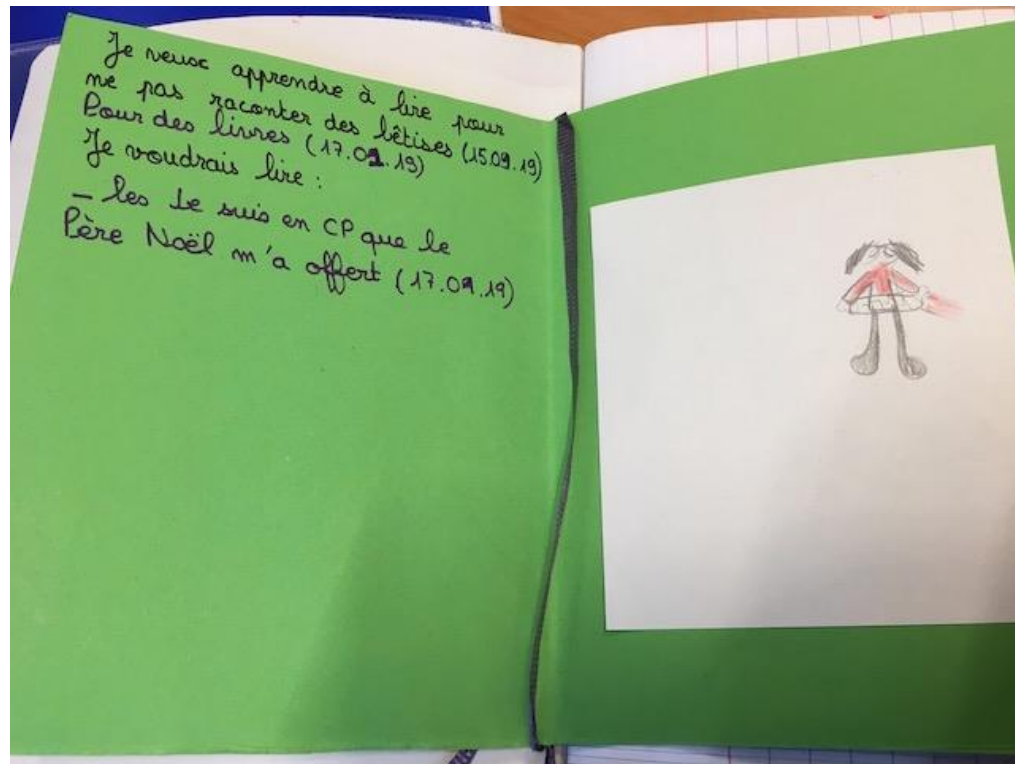 Je veux apprendre à lire pour
ne pas raconter des bêtises (15.09.19)
Pour des livres (17.09.19)
Je voudrais lire :
- les Je suis en CP que le
Père Noël m'a offert (17.09.19)